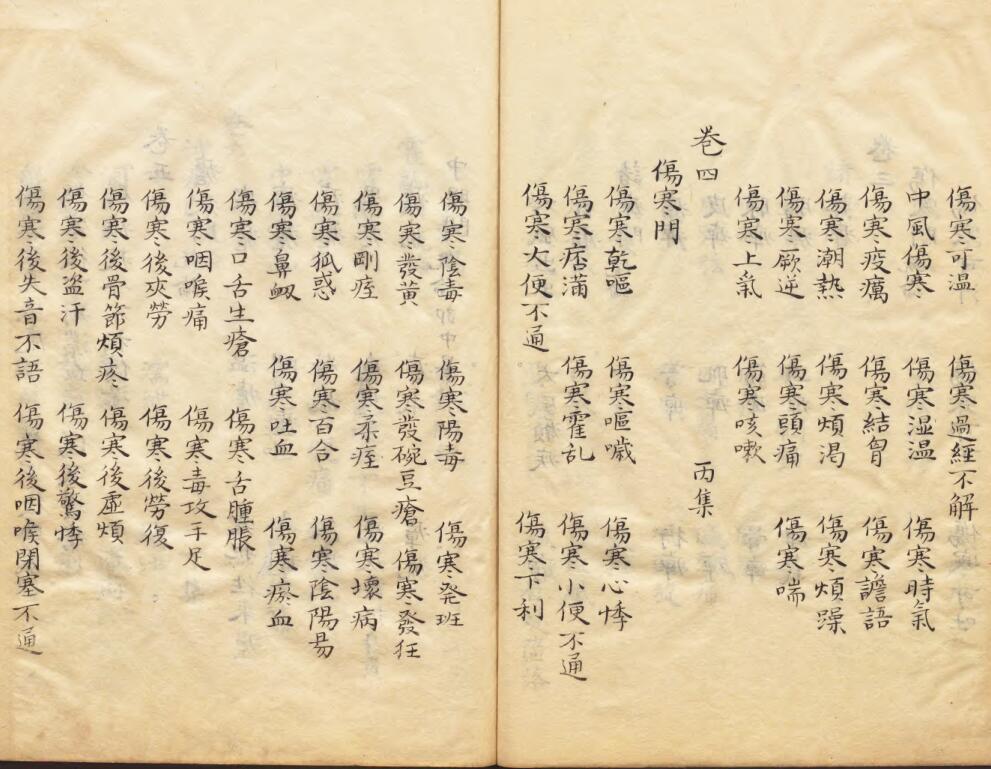 傷寒可温 傷寒過経不解
中風傷寒 傷寒湿温 傷寒時氣
傷寒疫癘 傷寒結胷 傷寒譫語
傷寒潮熱 傷寒煩渇 傷寒煩躁
傷寒厥逆 傷寒頭痛 傷寒喘
傷寒上氣 傷寒咳嗽
巻四 丙集
傷寒門
傷寒乾嘔 傷寒嘔噦 傷寒心悸
傷寒痞滿 傷寒霍乱 傷寒小便不通
傷寒大便不通 傷寒下利
傷寒陰毒 傷寒陽毒 傷寒発班
傷寒發黄 傷寒發碗豆瘡 傷寒發狂
傷寒剛痓 傷寒柔痓 傷寒壊病
傷寒狐惑 傷寒百合 傷寒陰陽易
傷寒鼻衂 傷寒吐血 傷寒瘀血
傷寒口舌生瘡 傷寒舌腫脹
傷寒咽喉痛 傷寒毒攻手足
傷寒後夾勞 傷寒後勞復
傷寒後骨節煩疼 傷寒後虚煩
傷寒後盗汗 傷寒後驚悸
傷寒後失音不語 傷寒後咽喉閉塞不通